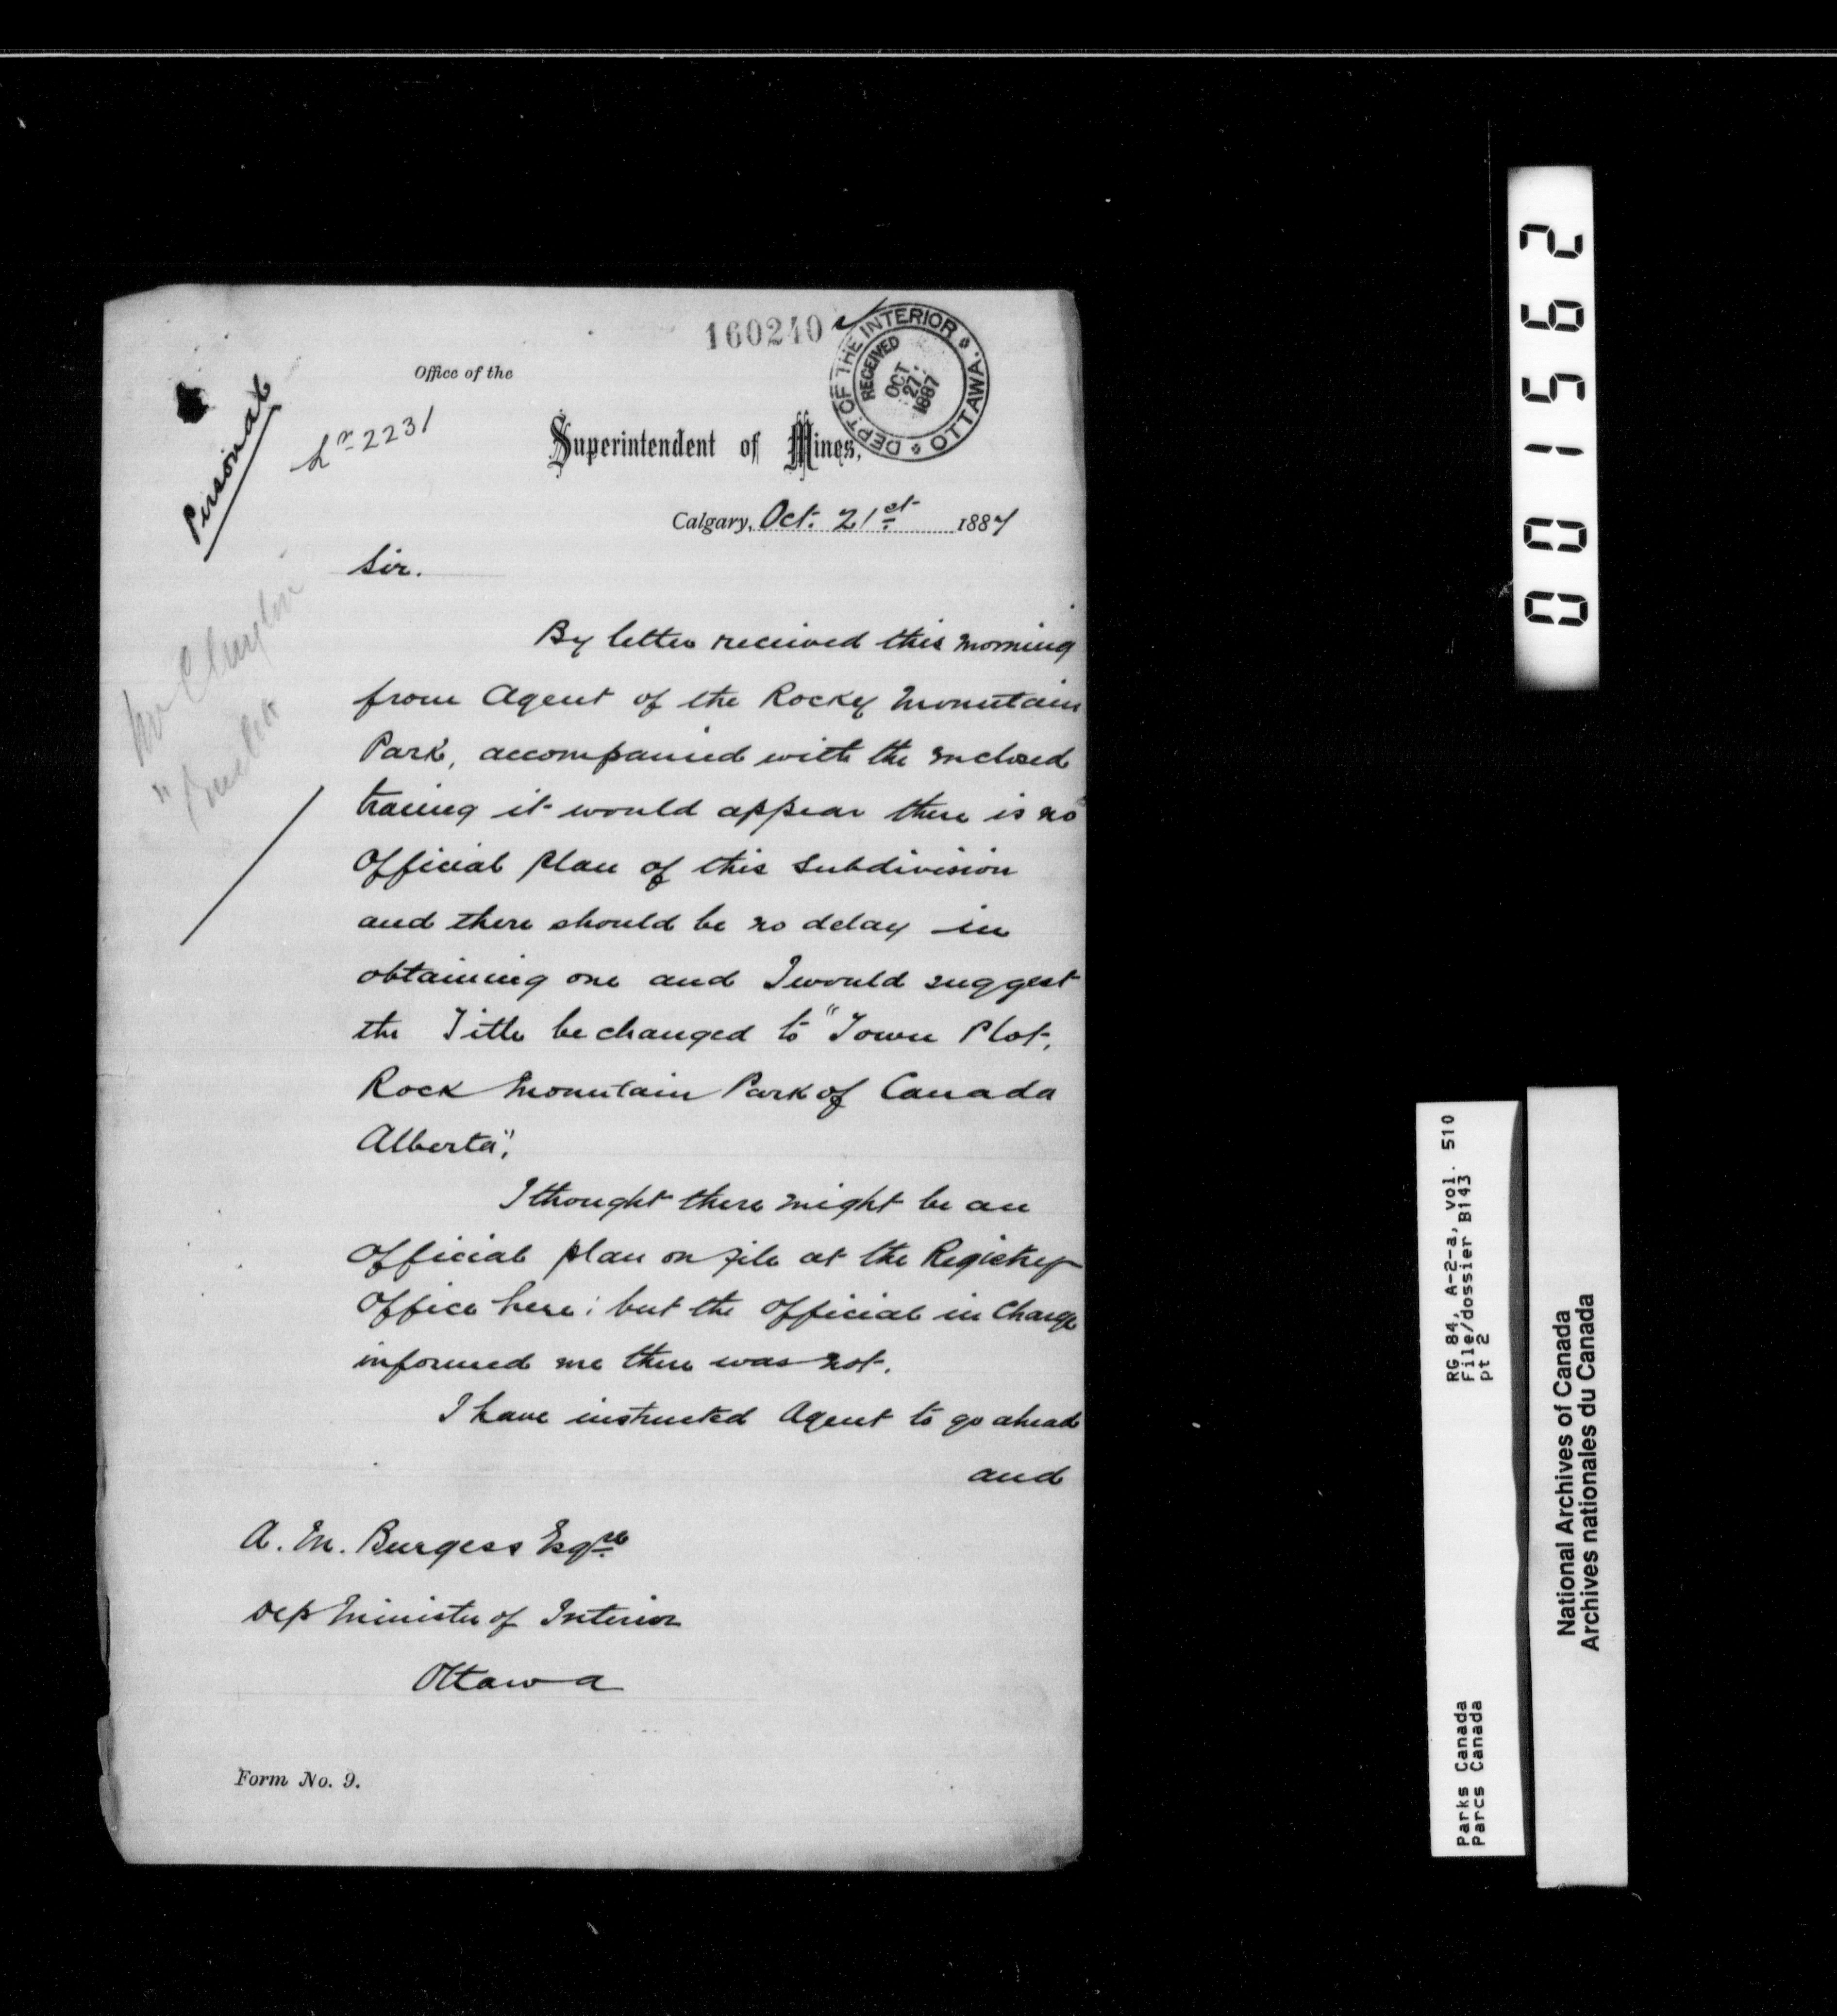 160240
DEPT. OF THE INTERIOR * OTTAWA *
RECEIVED
OCT
27
1887
Office of the
Personal
Lr 2231
Superintendent of Mines,
Calgary, Oct. 21st 1887
Sir.
By letter received this morning
from Agent of the Rocky Mountain
Park, accompanied with the inclosed
tracing it would appear there is no
Official plan of this subdivision
and there should be no delay in
obtaining one and I would suggest
the Title be changed to "Town Plot,
Rock Mountain Park of Canada
Alberta".
I thought there might be an
Official plan on file at the Registry
Office here; but the Official in Charge
informed me there was not.
I have instructed Agent to go ahead
and
A. M. Burgess Esqre
Dep Minister of Interior
Ottawa
Form No. 9.
001562
RG 84, A-2-a, vol. 510
File/dossier B143
pt 2
Parks Canada
Parcs Canada
National Archives of Canada
Archives nationales du Canada